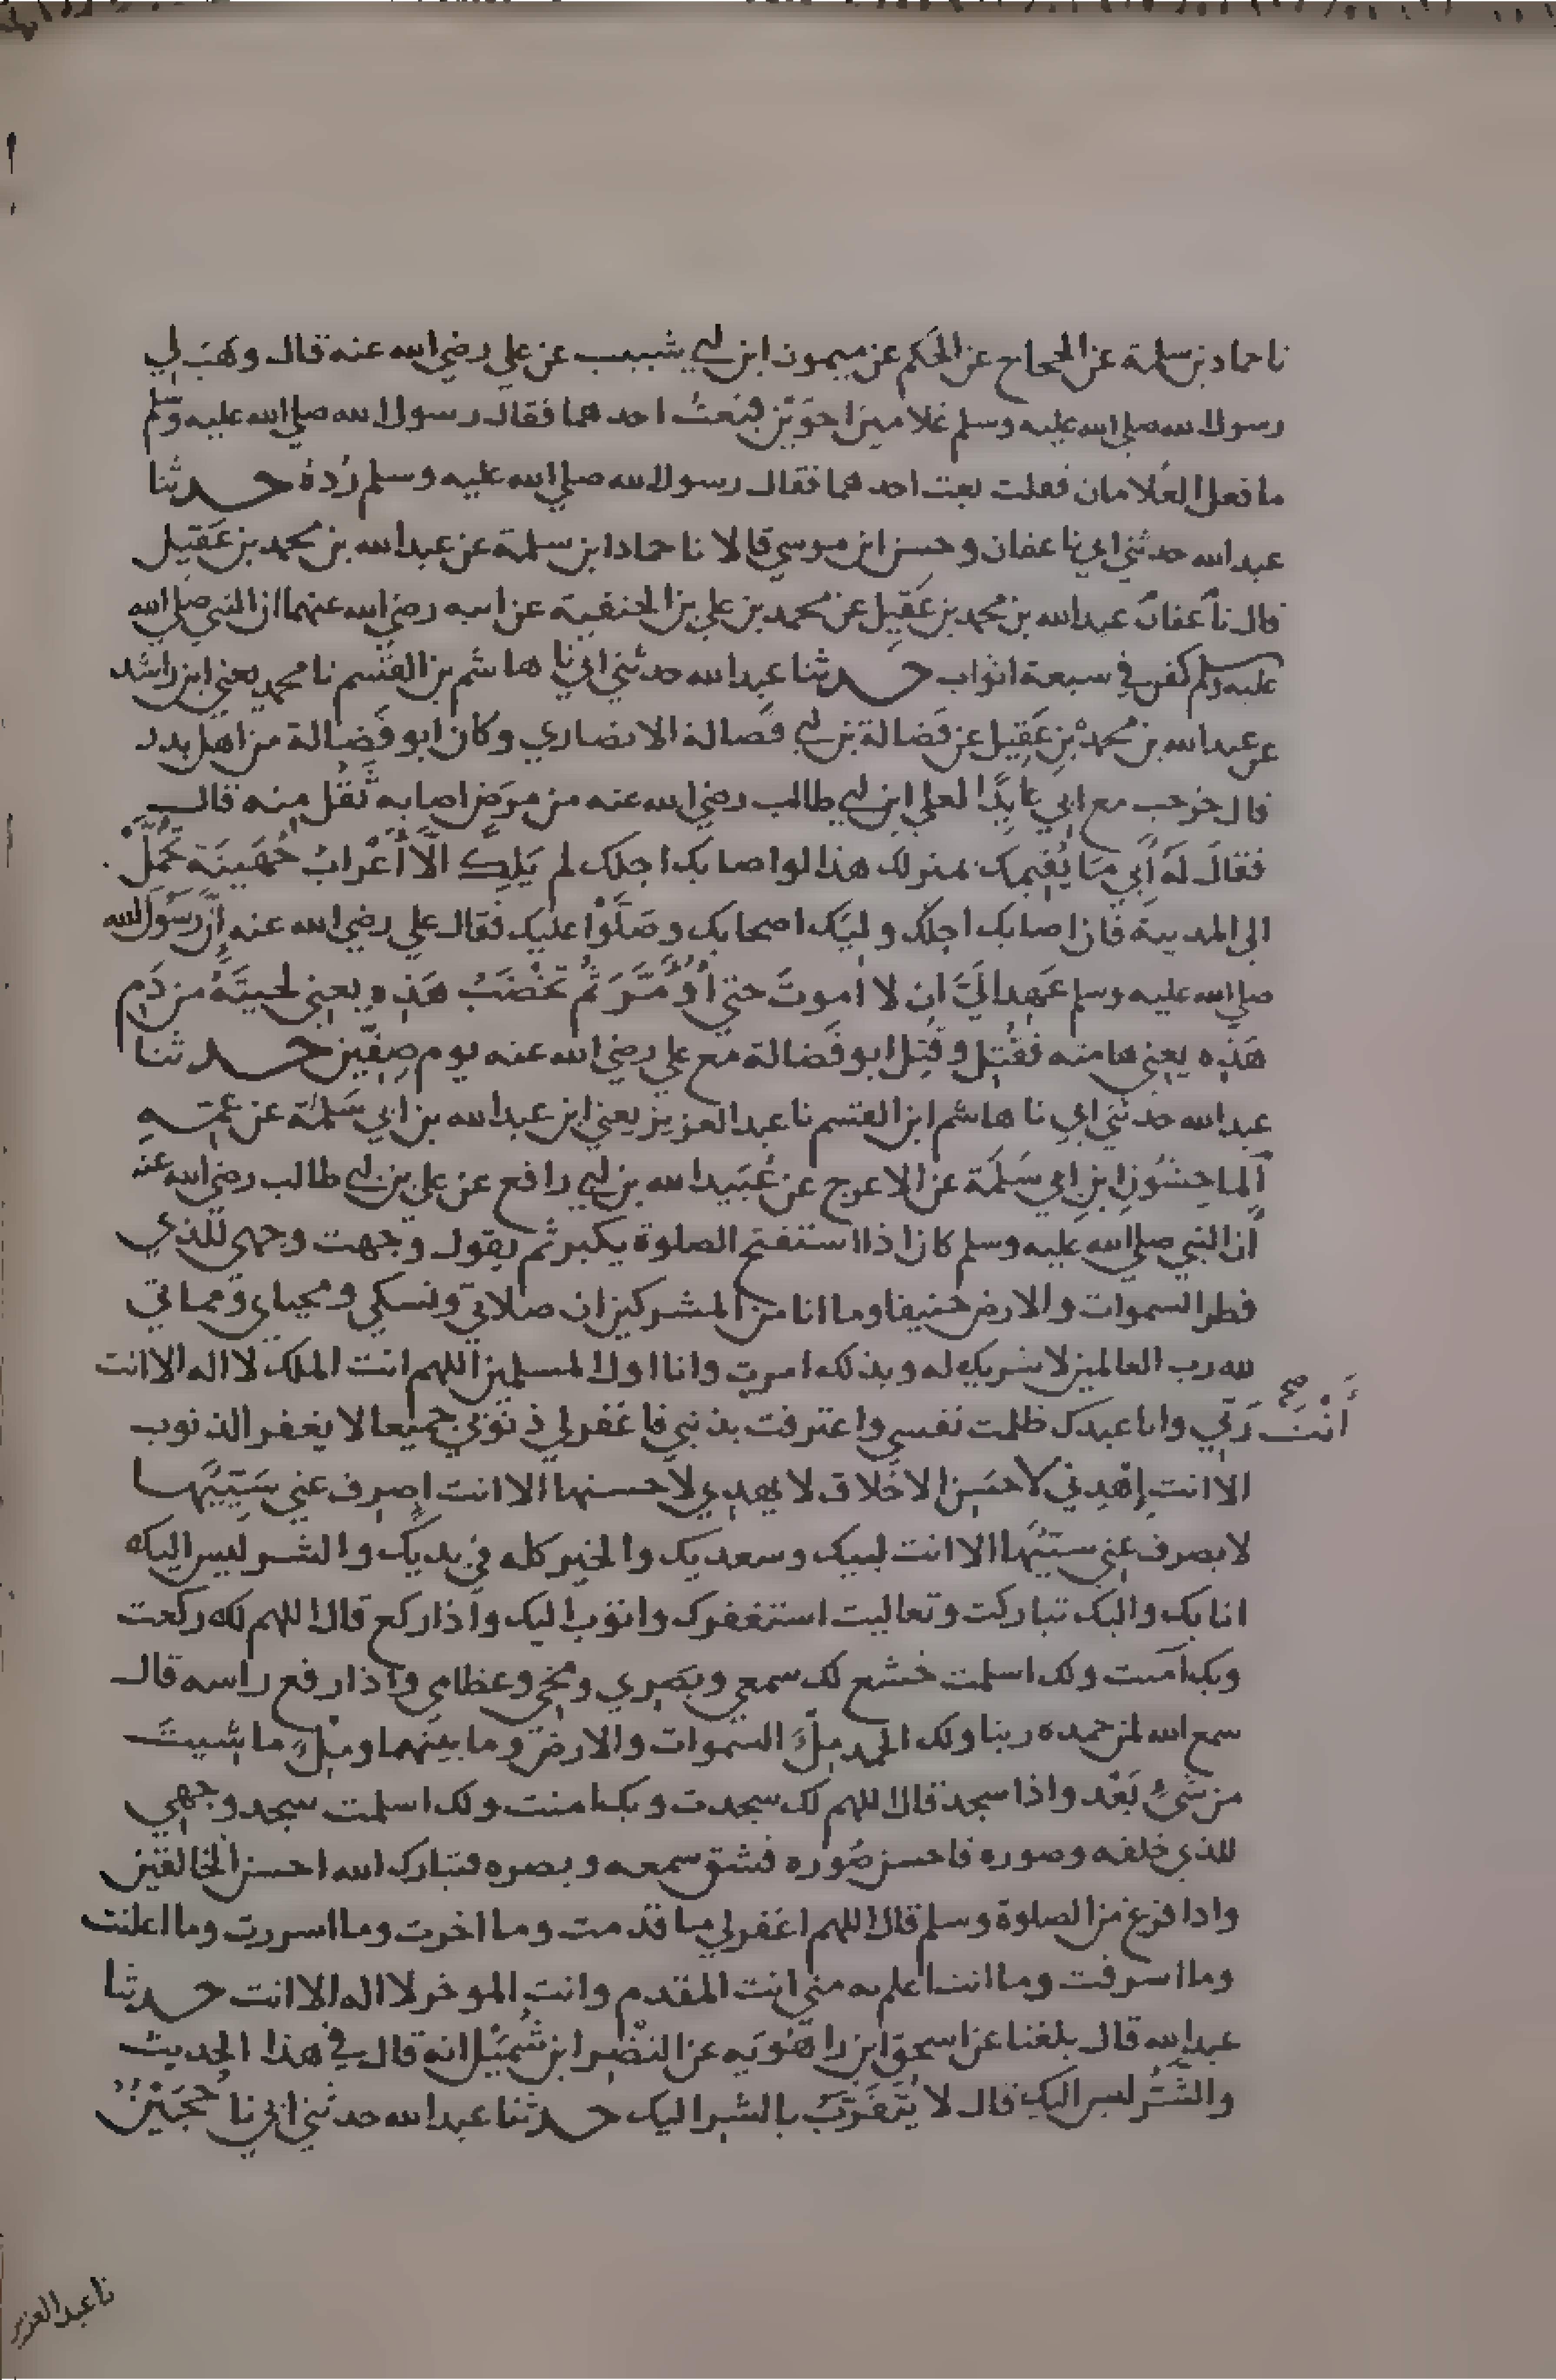 نا حماد بن سلمة عن الحجاج عن الحكم عن ميمون ابن ابي شبيب عن علي رضي الله عنه قال وهب لي
رسول الله صلي الله عليه وسلم غلامين اخوين فبعت احدهما فقال رسول الله صلي الله عليه وسلم
ما فعل الغلامان فقلت بعت احدهما فقال رسول الله صلي الله عليه وسلم رُدهُ حدثنا
عبد الله حدثني ابي نا عفان وحسن ابن موسي قالا نا حماد ابن سلمة عن عبد الله بن محمد بن عَقِيل
قال نا عفان عبد الله بن محمد بن عَقِيل عن محمد بن علي بن الحنفية عن ابيه رضي الله عنهما ان النبي صلي الله
عليه وسلم كفن في سبعة اثواب حدثنا عبد الله حدثني ابي نا هاشم بن القسم نا محمد يعني ابن راشد
عن عبد الله بن محمد بْنِ عَقِيل عن فَضالة بن ابي فَضالة الانصاري وكان ابو فَضالة من اهل بدر
قال خرجت مع ابي عايِدًا لعلي ابن ابي طالب رضي الله عنه من مرَض اصابه ثَقُل مِنه قال
فقالَ لَهُ أَبي مَا يُقيمك بمنزلك هذا لو اصابك اجلك لم يَلِكَ الَّا أَعْرابُ جُهَينَة تُحْمَلُ
الى المدينة فان اصابك اجلك وليَك اصحابك وصَلَّوْا عليك فقال علي رضي الله عنه إِنَّ رسول الله
صلي الله عليه وسلم عَهِد اليَّ ان لا اموتَ حتي أُوَمَّرَ ثُم تُخضَبُ هَذِه يعني لحيتَهُ من دَم
هَذِه يعني هامته فقُتِل وقُتِل ابو فَضالة مع علي رضي الله عنه يوم صِفّين حدثنا
عبد الله حدثني ابي نا هاشم ابن القسم نا عبد العزيز يعني ابن عبد الله بن ابي سَلَمَة عن عمِّهِ
الماجِشُونِ ابنِ ابي سَلَمَة عن الاعرج عن عُبَيد الله بن ابي رافع عن علي بن ابي طالب رضي الله عنه
أن النبي صلي الله عليه وسلم كان اذا استفتح الصلوة يكبر ثم يقول وجهت وجهي للذي
فطر السموات والارض حنيفا وما انا من المشركين ان صلاتي ونسكي ومحياي ومماتي
لله رب العالمين لا شريك له وبذلك امرت وانا اول المسلمين اللهم انت الملك لا اله الا انت
أَنْتَ صح رَبّي وانا عبدك ظلمت نفسي واعترفت بذنبي فاغفر لي ذنوبي جميعا لا يغفر الذنوب
الا انت إِهْدِني لاحسَن الاخلاق لا يهدي لاحسنها الا انت اصرف عني سَيّئها
لا يصرف عني سيّئها الا انت لبيك وسعديك والخير كله في يديك والشر ليس اليك
انا بك واليك تباركت وتعاليت استغفرك واتوب اليك واذا ركع قال اللهم لك ركعت
وبك آمنت ولك اسلمت خشع لك سمعي وبَصَري ومخي وعظامي واذا رفع راسه قال
سمع الله لمن حمده ربنا ولك الحمد مِلْءَ السموات والارض وما بينهما ومِلْءَ ما شيتَ
من شيءٍ بَعْد واذا سجد قال اللهم لك سجدت وبك امنت ولك اسلمت سجد وجهي
للذي خلقه وصوره فاحسن صُوره فشق سمعه وبصره فتبارك الله احسن الخالقين
واذا فرغ من الصلوة وسلم قال اللهم اغفر لي ما قدمت وما اخرت وما اسررت وما اعلنت
وما اسرفت وما انت اعلم به مني انت المقدم وانت الموخر لا اله الا انت حدثنا
عبد الله قال بلغنا عن اسحق ابن راهُويَه عن النضر ابن شُمَيْل انه قال في هذا الحديث
والشَّرُّ ليس اليك قال لا يُتَقَرّبُ بالشر اليك حدثنا عبد الله حدثني ابي نا حُجَيْنٌ
نا عبد العزيز